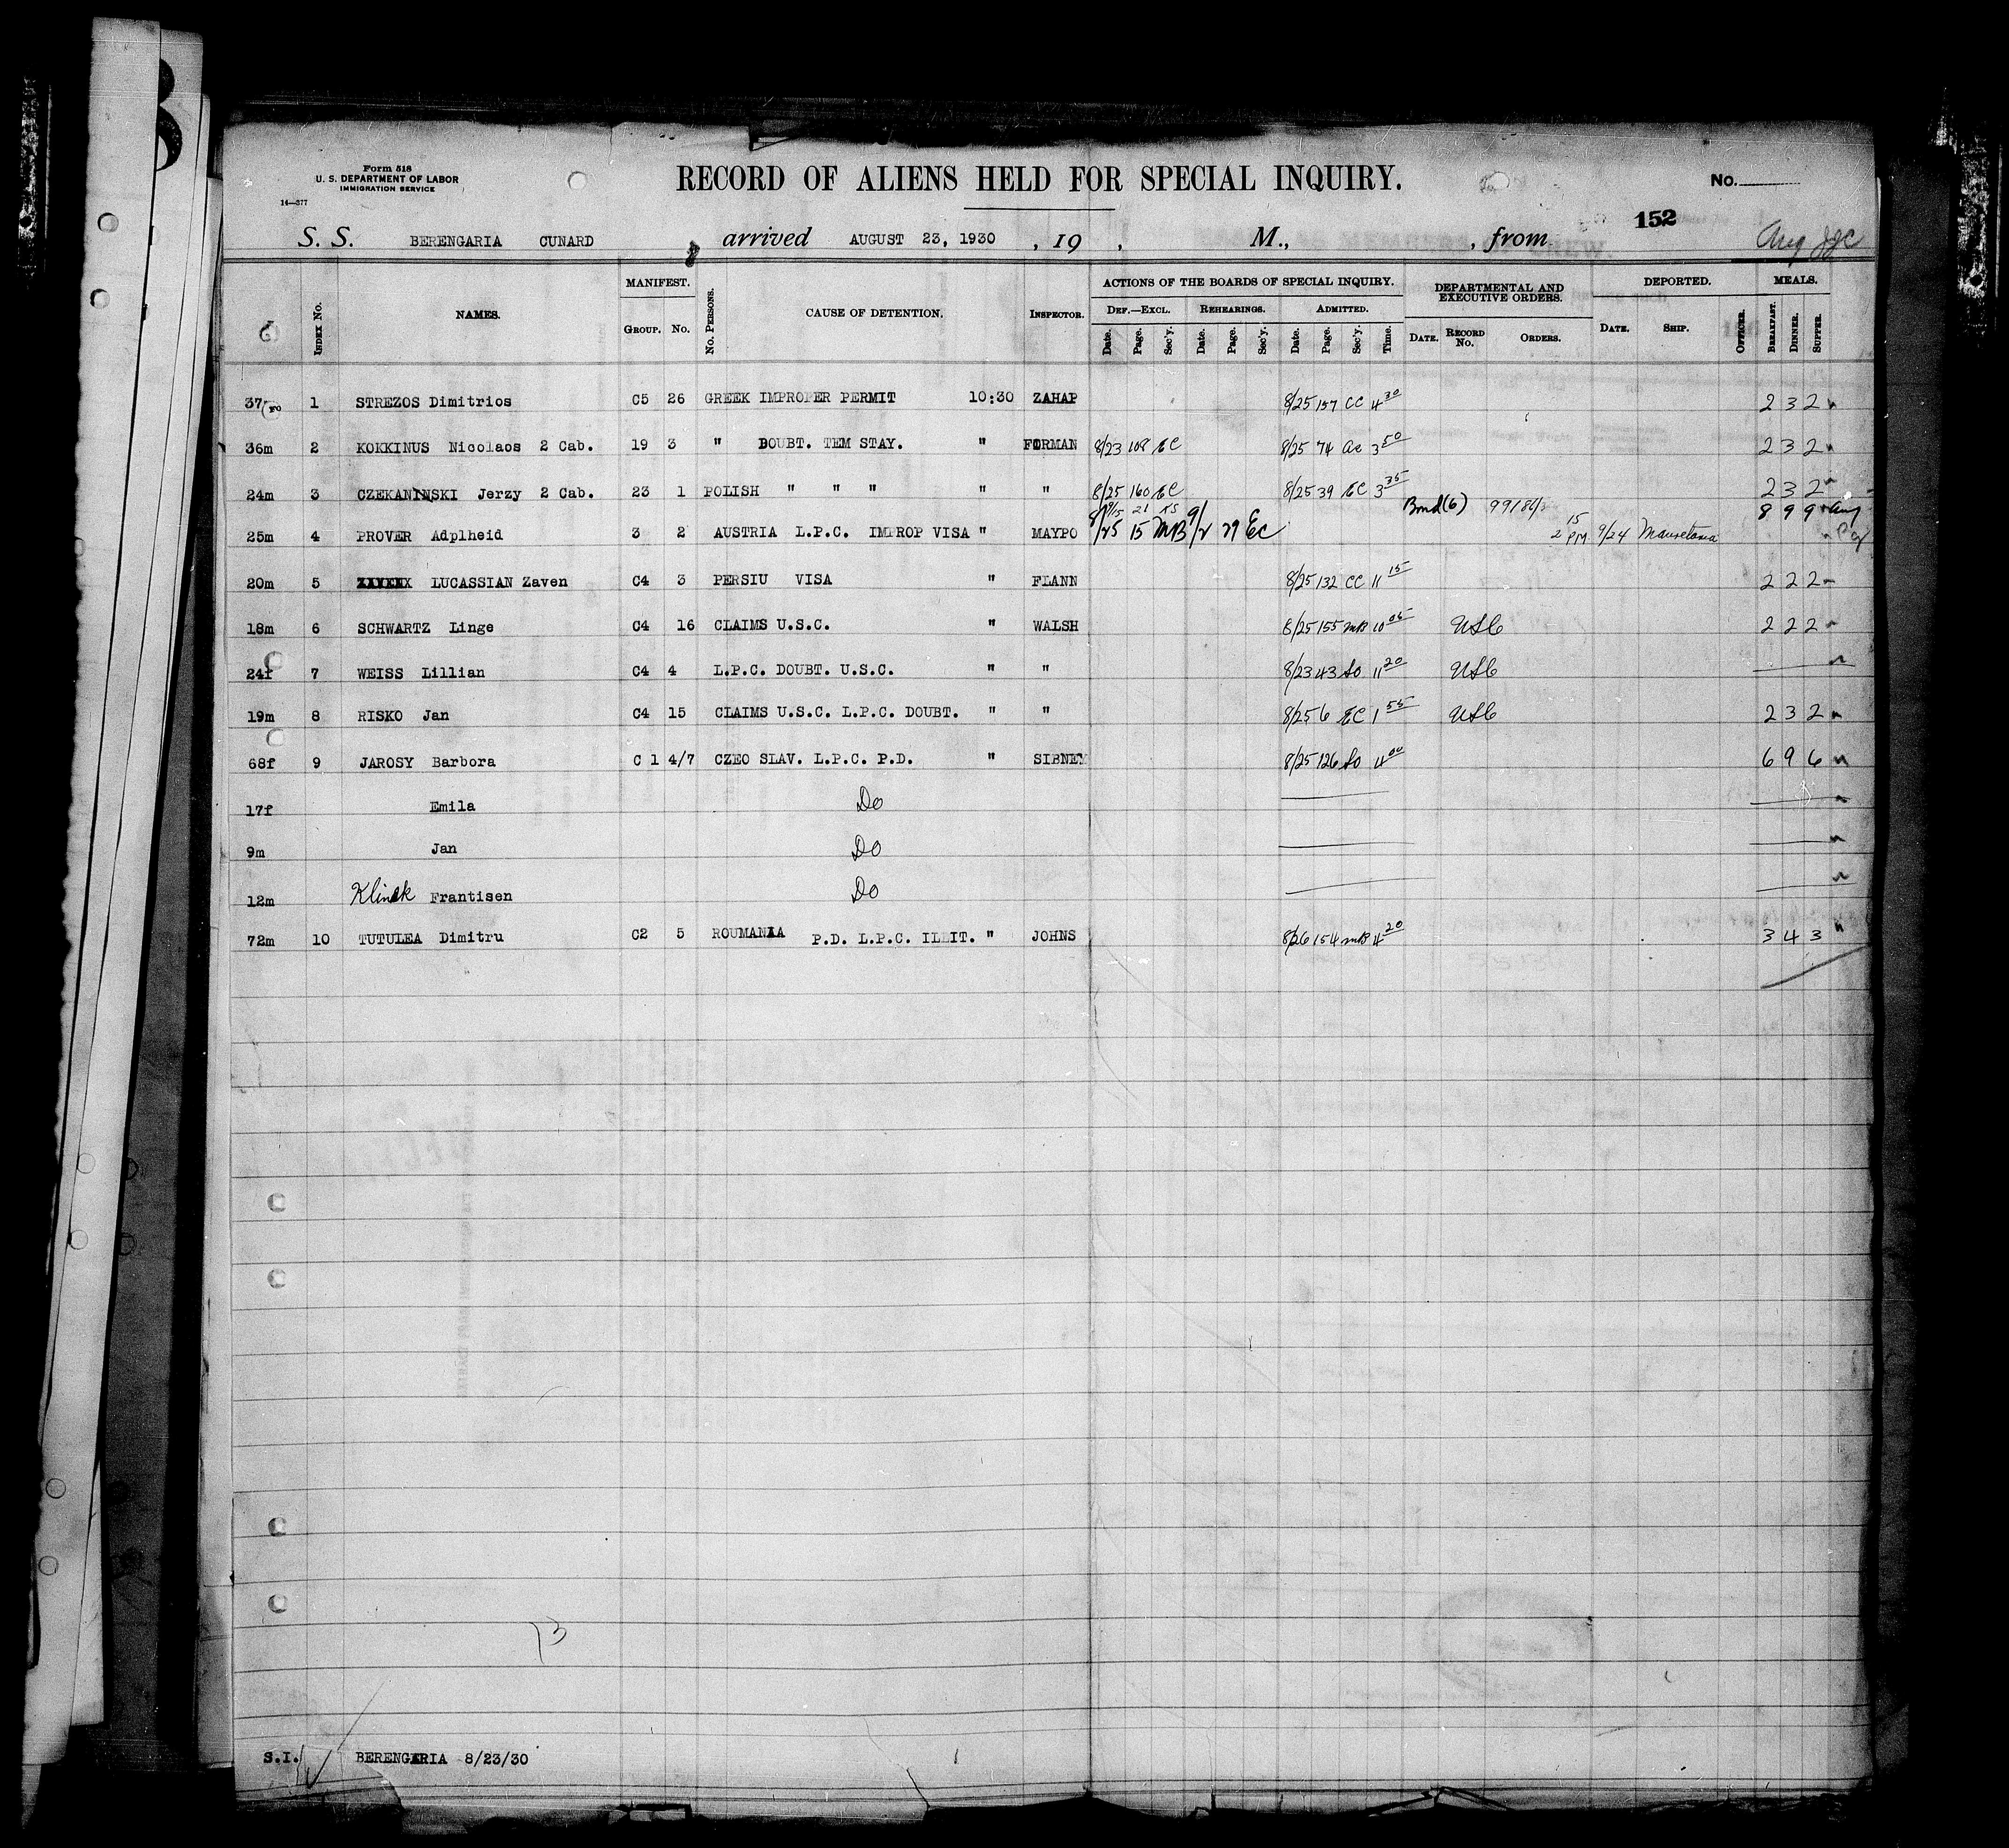 Form 518
U. S. DEPARTMENT OF LABOR
IMMIGRATION SERVICE
14—377
RECORD OF ALIENS HELD FOR SPECIAL INQUIRY.
No.
152
S. S. BERENGARIA CUNARD arrived AUGUST 23, 1930 , 19 , M., , from
Aug
INDEX NO. NAMES. MANIFEST. GROUP. NO. NO. PERSONS. CAUSE OF DETENTION. INSPECTOR. ACTIONS OF THE BOARDS OF SPECIAL INQUIRY. DEPARTMENTAL AND EXECUTIVE ORDERS. DEPORTED. MEALS.
DEF.—EXCL. REHEARINGS. ADMITTED.
Date. Page. Sec'y. Date. Page. Sec'y. Date. Page. Sec'y. Time. DATE. RECORD NO. ORDERS. DATE. SHIP. OFFICER. BREAKFAST. DINNER. SUPPER.
37 1 STREZOS Dimitrios C5 26 GREEK IMPROPER PERMIT 10:30 ZAHAP 8/25 157 CC 4 30 2 3 2
36m 2 KOKKINUS Nicolaos 2 Cab. 19 3 " DOUBT. TEM STAY. " FORMAN 8/23 108 EC 8/25 74 ac 3 50 2 3 2
24m 3 CZEKANINSKI Jerzy 2 Cab. 23 1 POLISH " " " " " 8/25 160 EC 8/25 39 EC 3 35 2 3 2
9/15 21 Bond (6) 99186/ 8 9 9 Aug
25m 4 PROVER Adplheid 3 2 AUSTRIA L.P.C. IMPROP VISA " MAYPO 8/25 15 MB 9/2 29 EC 2 15 PM 9/24 Mauretania
20m 5 LUCASSIAN Zaven C4 3 PERSIU VISA " FLANN 8/25 132 CC 11 15 2 2 2
18m 6 SCHWARTZ Linge C4 16 CLAIMS U.S.C. " WALSH 8/25 155 MB 10 05 USC 2 2 2
24f 7 WEISS Lillian C4 4 L.P.C. DOUBT. U.S.C. " " 8/23 43 so 11 20 USC
19m 8 RISKO Jan C4 15 CLAIMS U.S.C. L.P.C. DOUBT. " " 8/25 6 EC 1 55 USC 2 3 2
68f 9 JAROSY Barbora C 1 4/7 CZEO SLAV. L.P.C. P.D. " SIBNEY 8/25 126 so 4 00 6 9 6
17f Emila Do
9m Jan Do
12m Frantisen Do
72m 10 TUTULEA Dimitru C2 5 ROUMANIA P.D. L.P.C. ILLIT. " JOHNS 8/26 154 MB 4 20 3 4 3
13
S.I. BERENGARIA 8/23/30